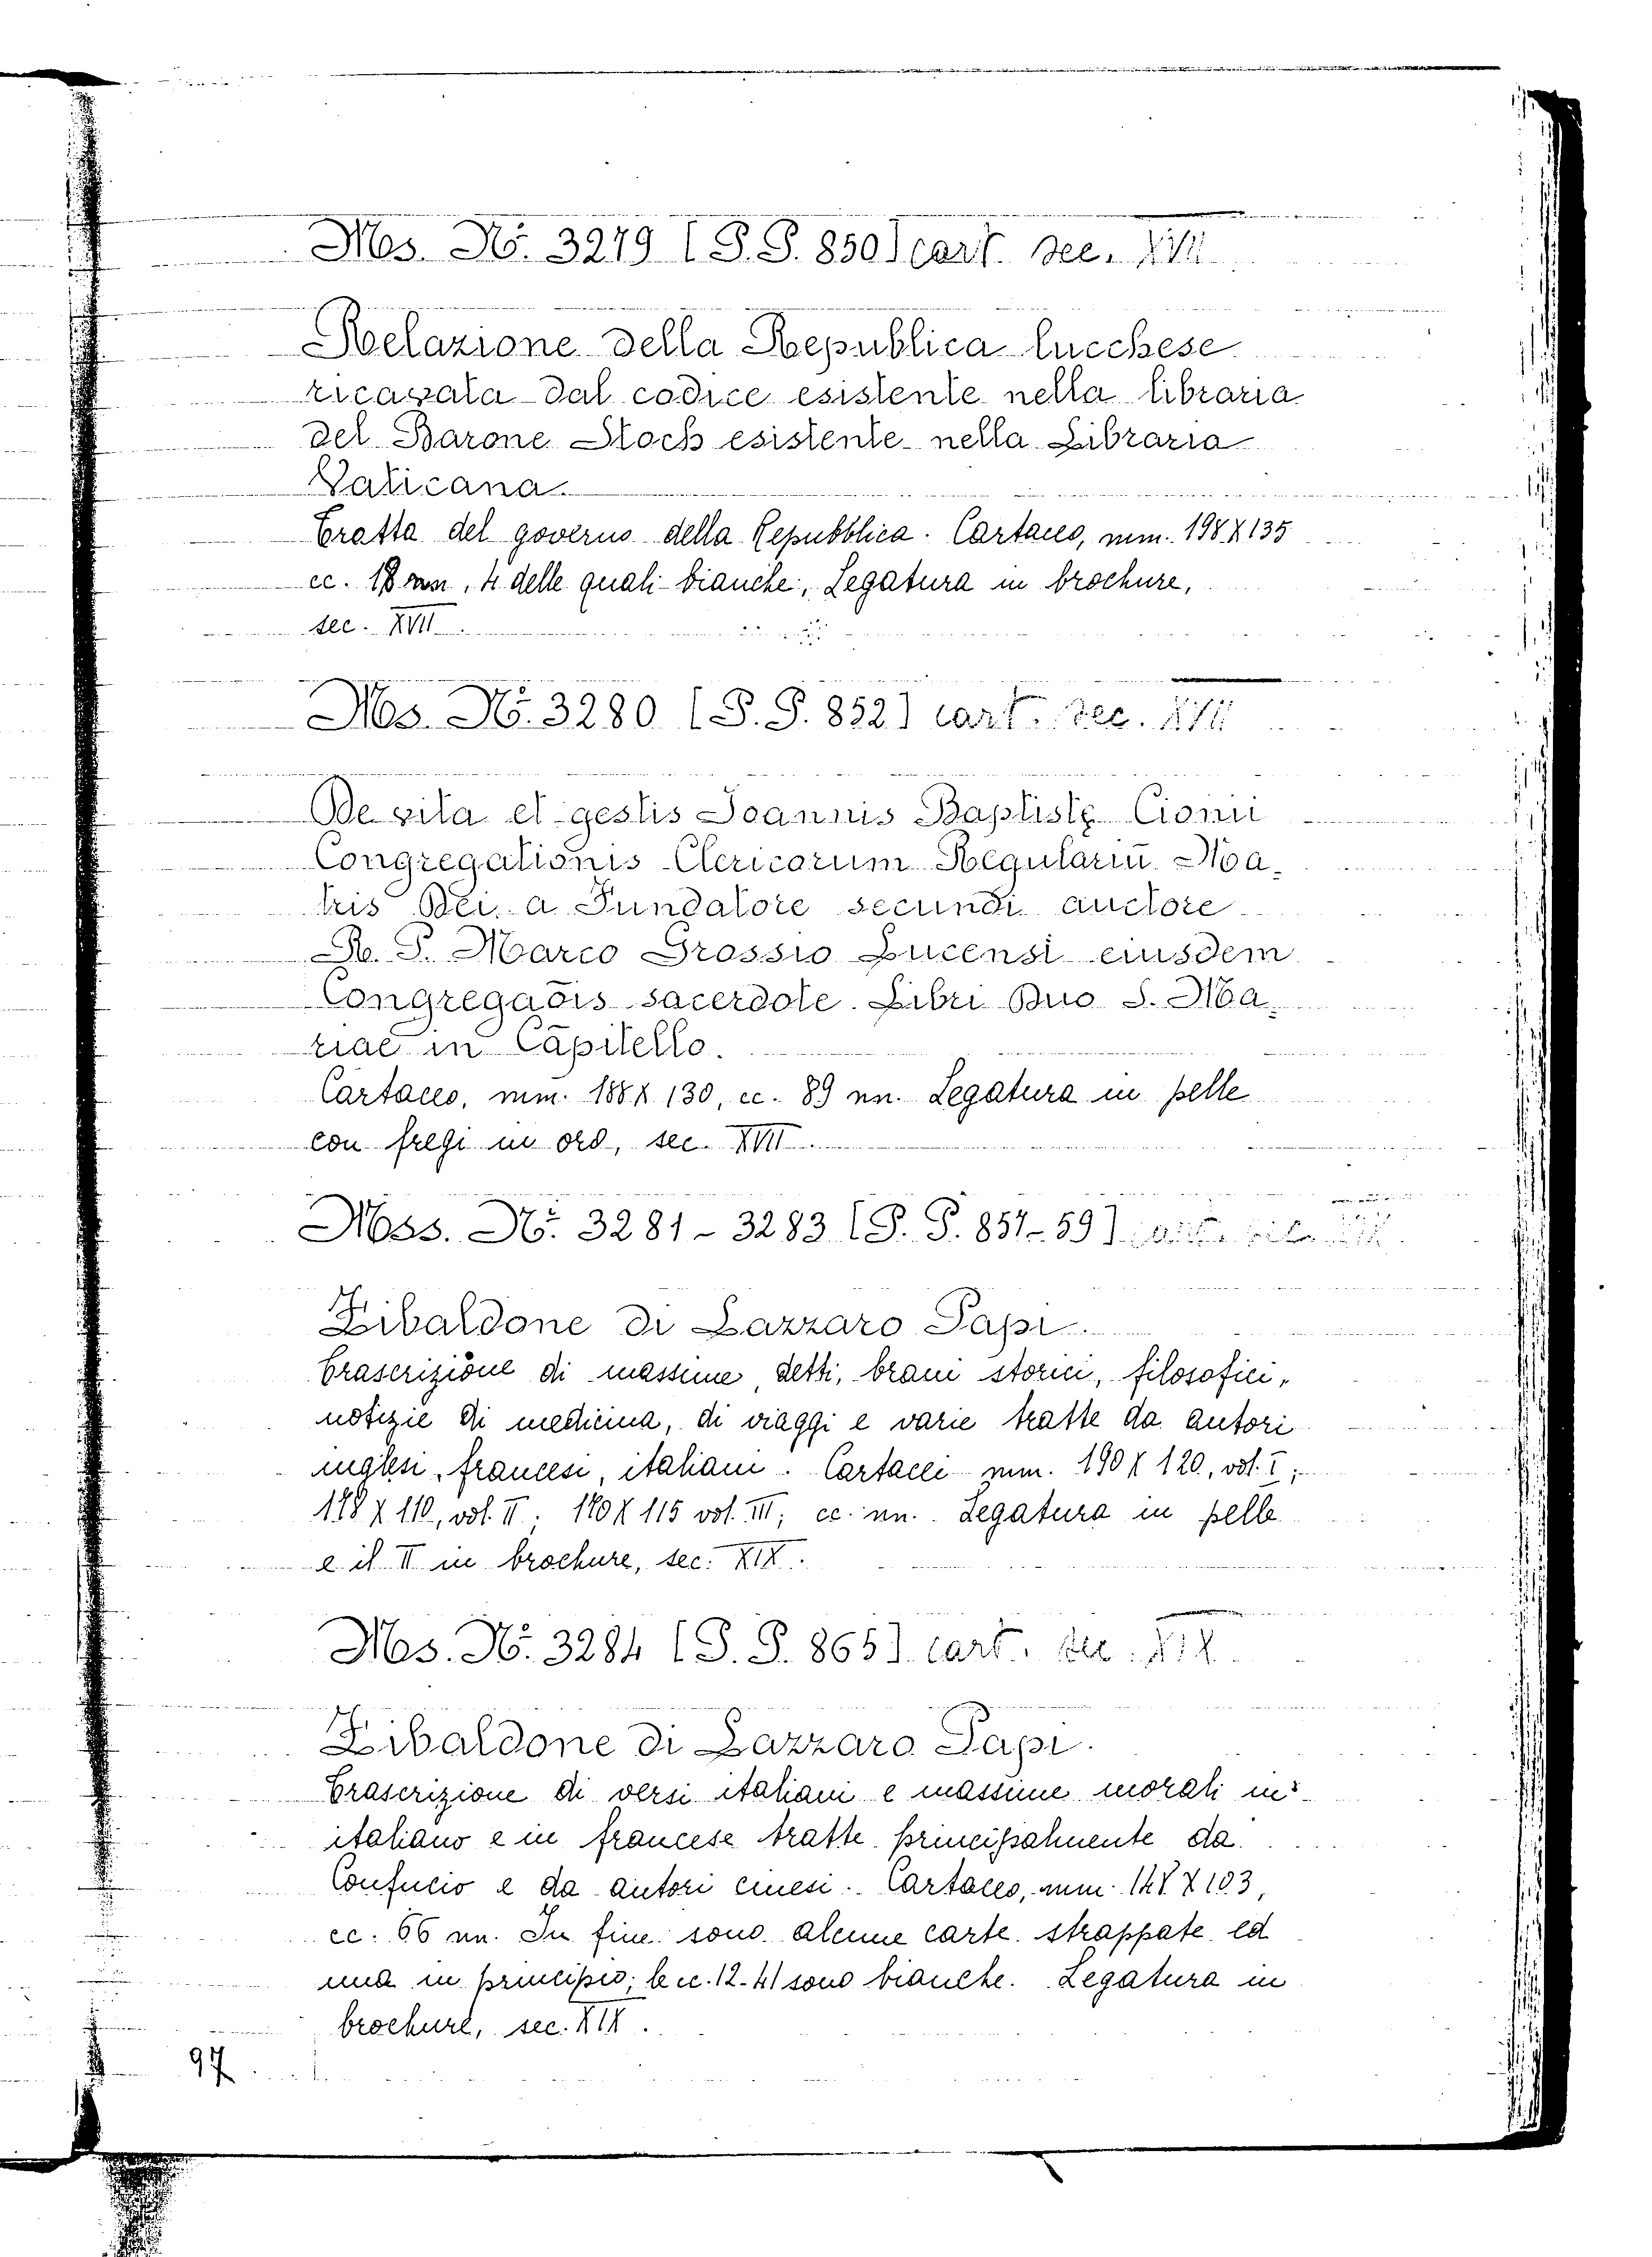 Ms. N°. 3279 [S. S. 850] cart. sec. XVII
Relazione della Republica lucchese
ricavata dal codice esistente nella libraria
del Barone Stoch esistente nella Libraria
Vaticana.
Tratta del governo della Repubblica. Cartaceo, mm. 198 X 135
cc. 18 nn, 4 delle quali bianche, Legatura in brochure,
sec. XVII.
Ms. N°. 3280 [S. S. 852] cart. sec. XVII
De vita et gestis Joannis Baptistę Cionii
Congregationis Clericorum Regulariũ Ma-
tris Dei a Fundatore secundi auctore
R. P. Marco Grossio Lucensi eiusdem
Congregaõis sacerdote. Libri Duo S. Ma-
riae in Capitello.
Cartaceo, mm. 188 X 130, cc. 89 nn. Legatura in pelle
con fregi in oro, sec. XVII.
Mss. N°. 3281 - 3283 [S. S. 857-59]
Zibaldone di Lazzaro Papi.
Trascrizione di massime, detti, brani storici, filosofici,
notizie di medicina, di viaggi e varie tratte da autori
inglesi, francesi, italiani. Cartacei mm. 190 X 120, vol. I;
178 X 110, vol. II; 170 X 115 vol. III; cc. nn. Legatura in pelle
e il II in brochure, sec. XIX.
Ms. N°. 3284 [S. S. 865] cart. sec. XIX.
Zibaldone di Lazzaro Papi.
Trascrizione di versi italiani e massime morali in
italiano e in francese tratte principalmente da
Confucio e da autori cinesi. Cartaceo, mm. 148 X 103,
cc. 66 nn. In fine sono alcune carte strappate ed
una in principio; le cc. 12-41 sono bianche. Legatura in
brochure, sec. XIX.
97